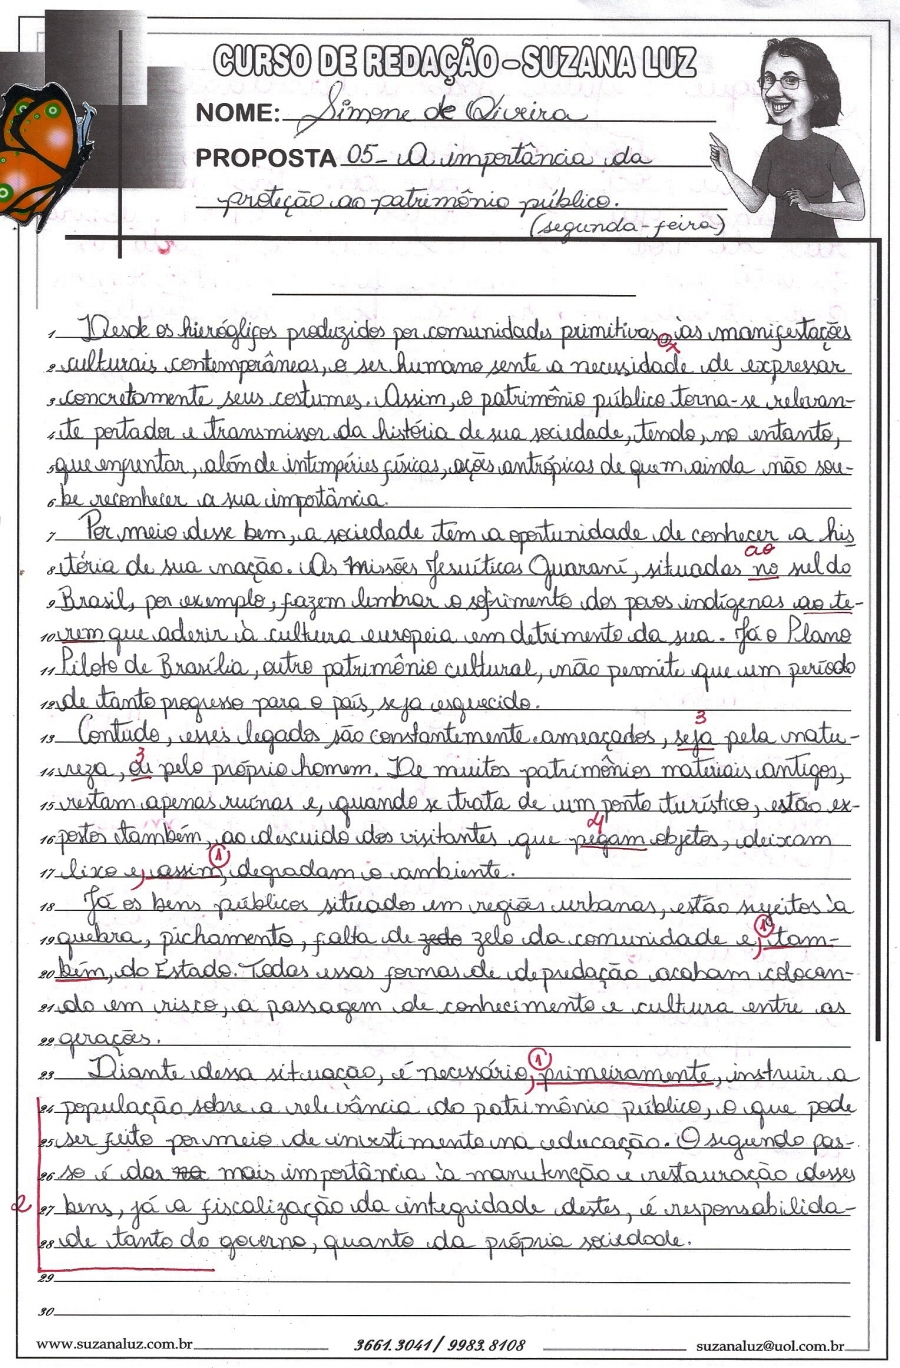 CURSO DE REDAÇÃO - SUZANA LUZ
NOME: Simone de Oliveira
PROPOSTA 05- A importância da
proteção ao patrimônio público.
(segunda-feira)
1 Desde os hieróglifos produzidos por comunidades primitivas às manifestações
2 culturais contemporâneas, o ser humano sente a necessidade de expressar
3 concretamente seus costumes. Assim, o patrimônio público torna-se relevan-
4 te portador e transmissor da história de sua sociedade, tendo, no entanto,
5 que enfrentar, além de intimpéries físicas, ações antrópicas de quem ainda não sou-
6 be reconhecer a sua importância.
7 Por meio desse bem, a sociedade tem a oportunidade de conhecer a his
ao
8 tória de sua nação. As Missões Jesuíticas Guarani, situadas no sul do
9 Brasil, por exemplo, fazem lembrar o sofrimento dos povos indígenas ao te-
10 rem que aderir à cultura europeia em detrimento da sua. Já o Plano
11 Piloto de Brasília, outro patrimônio cultural, não permite que um período
12 de tanto progresso para o país, seja esquecido.
3
13 Contudo, esses legados são constantemente ameaçados, seja pela natu-
3
14 reza, ou pelo próprio homem. De muitos patrimônios materiais antigos,
15 restam apenas ruínas e, quando se trata de um ponto turístico, estão ex-
4
16 postos também, ao descuido dos visitantes que pegam objetos, deixam
1
17 lixo e, assim, degradam o ambiente.
18 Já os bens públicos situados em regiões urbanas, estão sujeitos à
1
19 quebra, pichamento, falta de zedo zelo da comunidade e, tam-
20 bém, do Estado. Todas essas formas de depredação acabam colocan-
21 do em risco, a passagem de conhecimento e cultura entre as
22 gerações.
1
23 Diante dessa situação, é necessário, primeiramente, instruir a
24 população sobre a relevância do patrimônio público, o que pode
25 ser feito por meio de investimento na educação. O segundo pas-
26 so é dar mais importância à manutenção e restauração desses
2
27 bens, já a fiscalização da integridade destes, é responsabilida-
28 de tanto do governo, quanto da própria sociedade.
29
30
www.suzanaluz.com.br 3661.3041 / 9983.8108 suzanaluz@uol.com.br